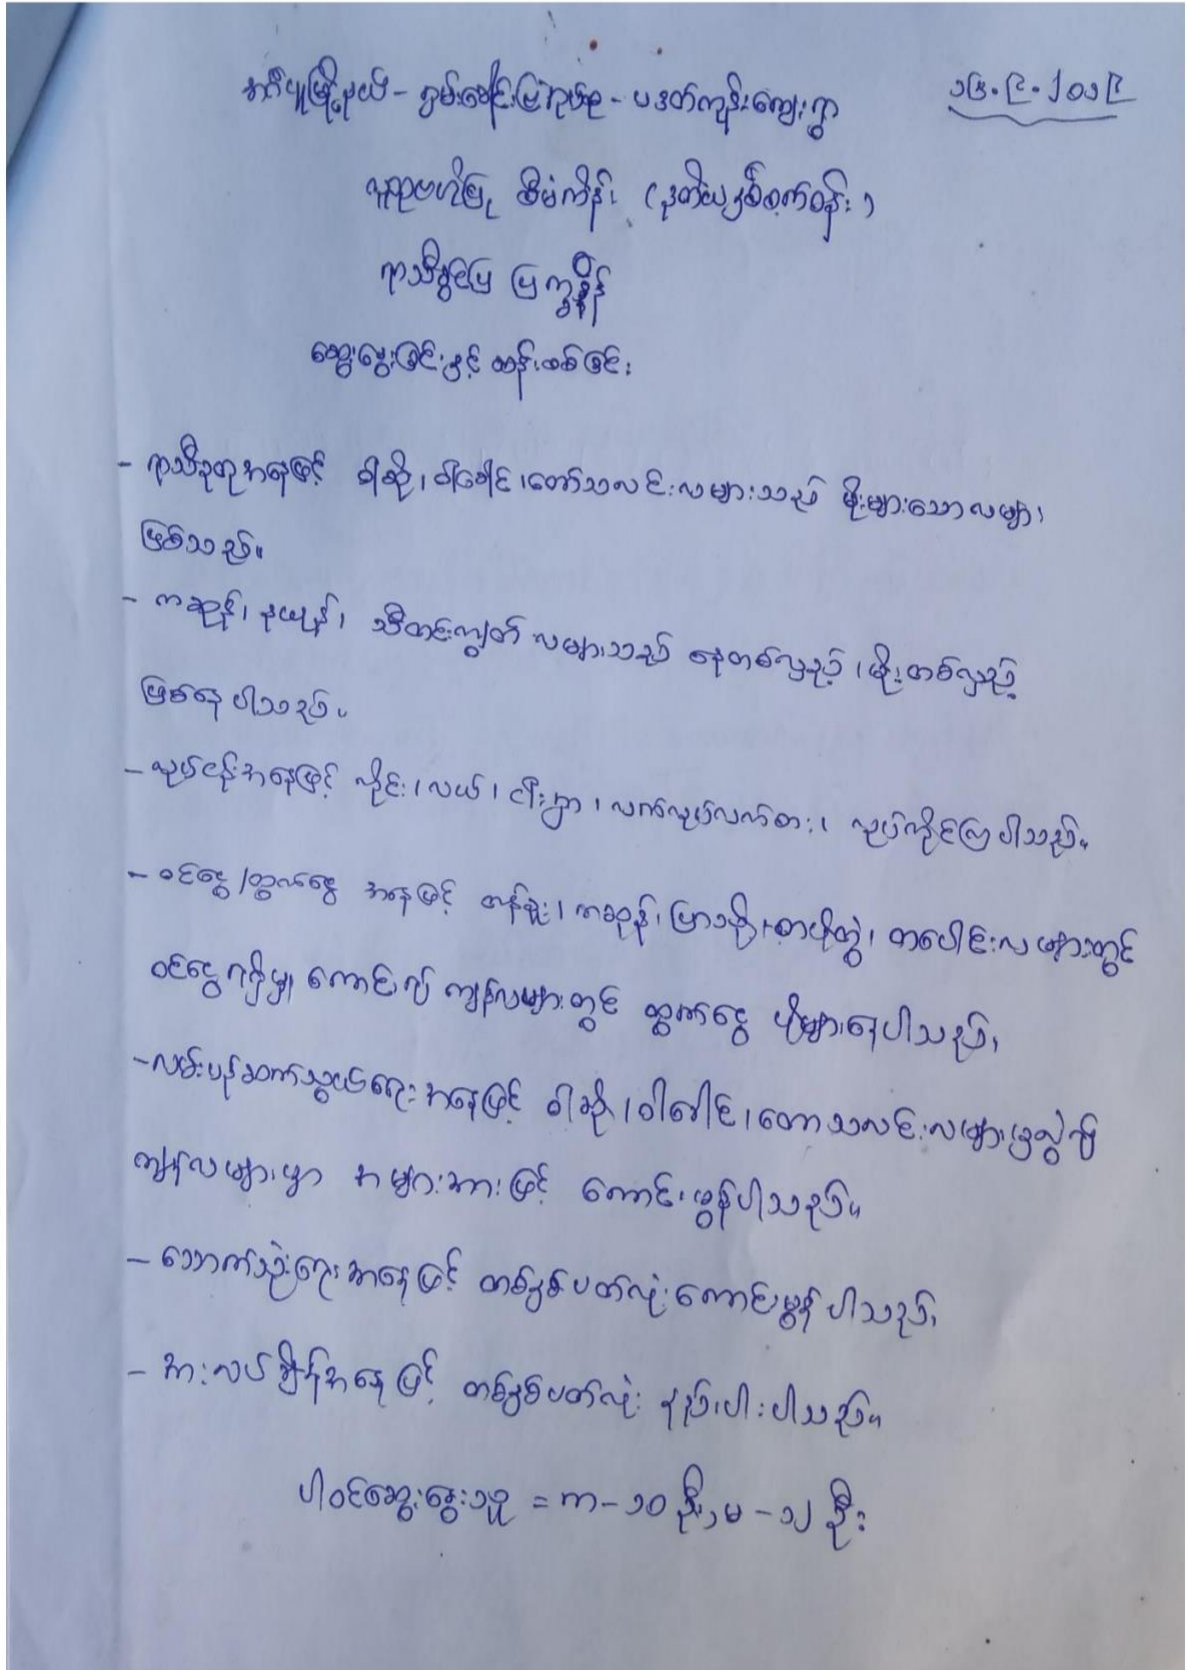 အင်္ဂပူမြို့နယ် - ကွမ်းခေါင်းမြဲအုပ်စု - ပဒတ်ကုန်းကျေးရွာ ၁၆.၉.၂၀၁၉
လူထုဗဟိုပြု စီမံကိန်း (ဒုတိယနှစ်စက်ဝန်း)
ရာသီခွင်ပြ ပြက္ခဒိန်
ဆွေးနွေးခြင်းနှင့် ဆန်းစစ်ခြင်း
- ရာသီဥတုအနေဖြင့် ဝါဆို၊ ဝါခေါင်၊ တော်သလင်းလများသည် မိုးများသောလများ
ဖြစ်သည်။
- ကဆုန်၊ နယုန်၊ သီတင်းကျွတ် လများသည် နေတစ်လှည့်၊ မိုးတစ်လှည့်
ဖြစ်နေပါသည်။
- လုပ်ငန်းအနေဖြင့် ကိုင်း၊ လယ်၊ ငါးရှာ၊ လက်လုပ်လက်စား၊ လုပ်ကိုင်ကြပါသည်။
- ဝင်ငွေ/ထွက်ငွေ အနေဖြင့် တန်ခူး၊ ကဆုန်၊ ပြာသို၊ တပို့တွဲ၊ တပေါင်းလများတွင်
ဝင်ငွေရရှိမှု ကောင်း၍ ကျန်လများတွင် ထွက်ငွေ ပိုများနေပါသည်။
- လမ်းပန်းဆက်သွယ်ရေးအနေဖြင့် ဝါဆို၊ ဝါခေါင်၊ တော်သလင်းလများမှလွဲ၍
ကျန်လများမှာ အများအားဖြင့် ကောင်းမွန်ပါသည်။
- သောက်သုံးရေအနေဖြင့် တစ်နှစ်ပတ်လုံး ကောင်းမွန်ပါသည်။
- အားလပ်ချိန်အနေဖြင့် တစ်နှစ်ပတ်လုံး နည်းပါးပါသည်။
ပါဝင်ဆွေးနွေးသူ = ကျား - ၁၀ ဦး၊ မ - ၁၂ ဦး